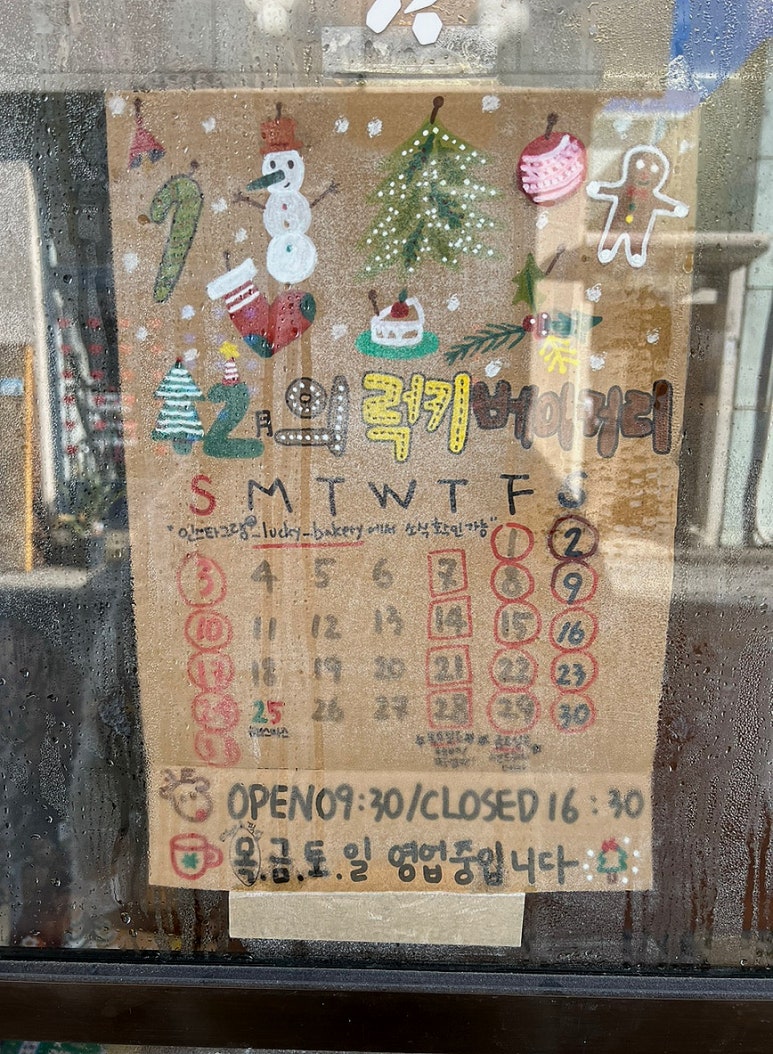 12月의 럭키베이커리
S M T W T F S
"인스타그램@_lucky_bakery에서 소식 확인가능"
1 2
3 4 5 6 7 8 9
10 11 12 13 14 15 16
17 18 19 20 21 22 23
24 25 26 27 28 29 30
31
OPEN 09:30/CLOSED 16:30
목.금.토.일 영업중입니다